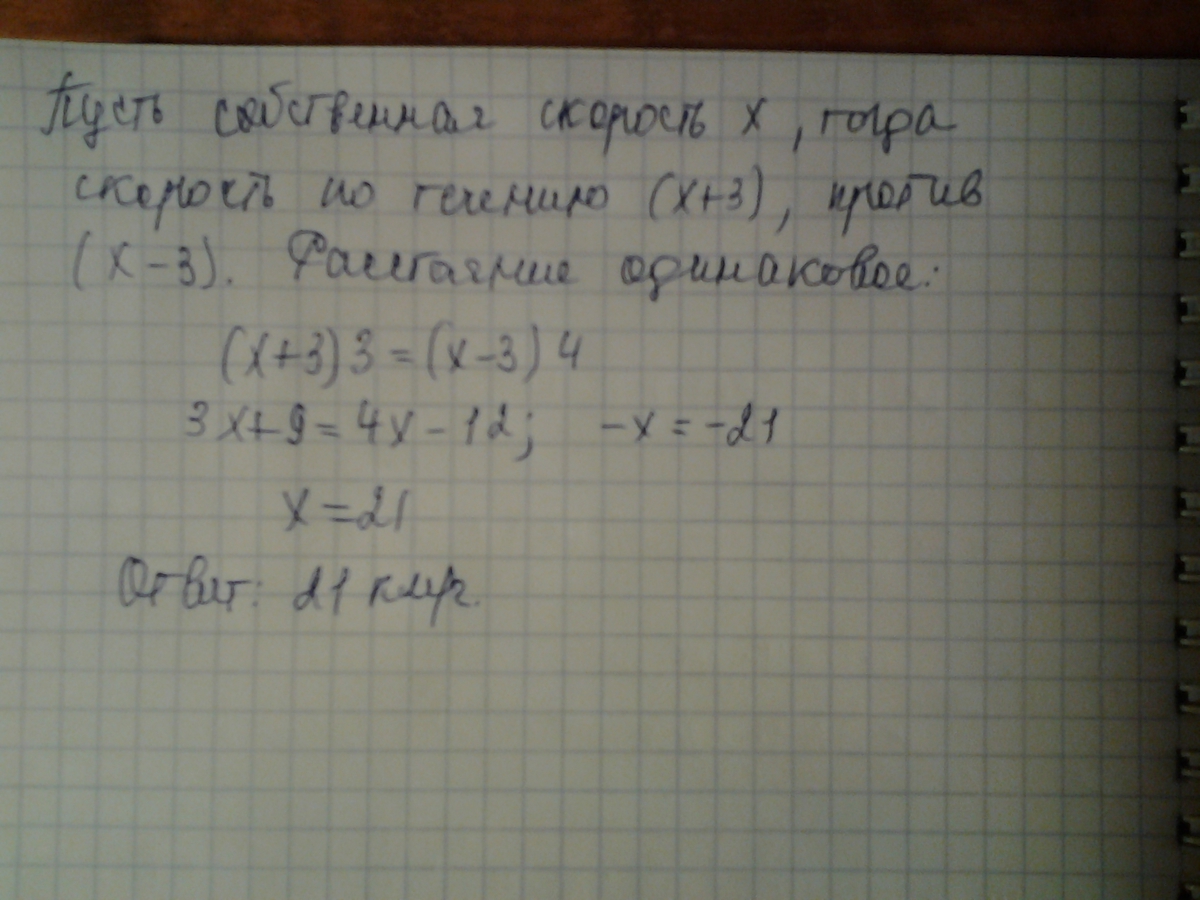 Пусть собственная скорость x, тогда
скорость по течению (x+3), против
(x-3). Расстояние одинаковое:
(x+3)3=(x-3)4
3x+9=4x-12; -x=-21
x=21
Ответ: 21 км/ч.